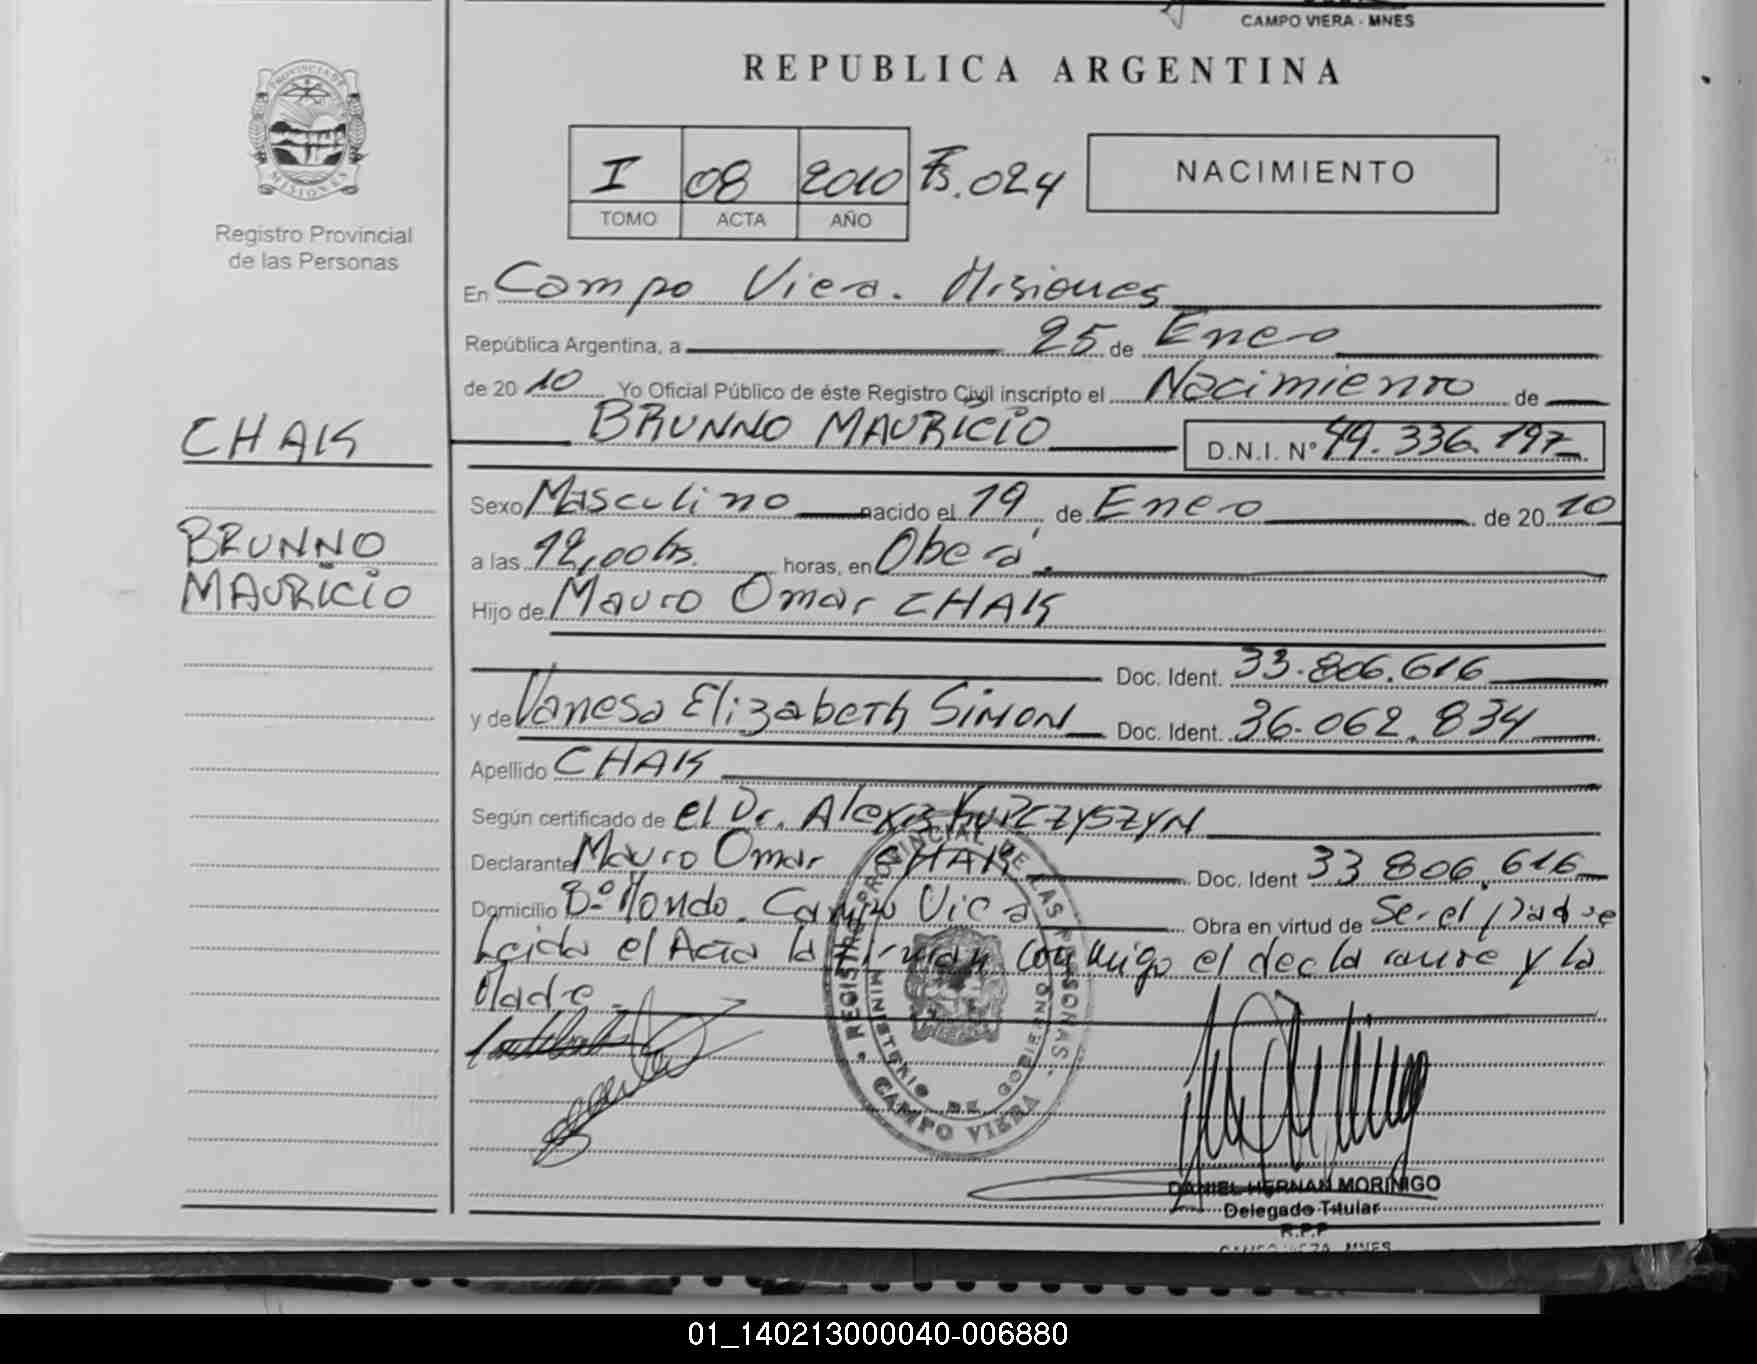 CAMPO VIERA - MNES
REPUBLICA ARGENTINA
PROVINCIA DE MISIONES
Registro Provincial
de las Personas
I 08 2010 Fs.024
TOMO ACTA AÑO
NACIMIENTO
En Campo Viera. Misiones
República Argentina, a 25 de Enero
de 2010 Yo Oficial Público de éste Registro Civil inscripto el Nacimiento de
BRUNNO MAURICIO D.N.I. Nº 49.336.197
CHAK
BRUNNO
MAURICIO
Sexo Masculino nacido el 19 de Enero de 2010
a las 12,00hs. horas, en Oberá.
Hijo de Mauro Omar CHAK
Doc. Ident. 33.806.616
y de Vanesa Elizabeth SIMON Doc. Ident. 36.062.834
Apellido CHAK
Según certificado de el Dr. Alexis
Declarante Mauro Omar CHAK Doc. Ident 33 806.616
Domicilio Bº Mondo. Campo Viera Obra en virtud de Ser el Padre
Leida el Acta la firman conmigo el declarante y la
Madre.
REGISTRO PROVINCIAL DE LAS PERSONAS
MINISTERIO DE GOBIERNO
CAMPO VIERA
DANIEL HERNAN MORINIGO
Delegado Titular
R.P.P
01_140213000040-006880